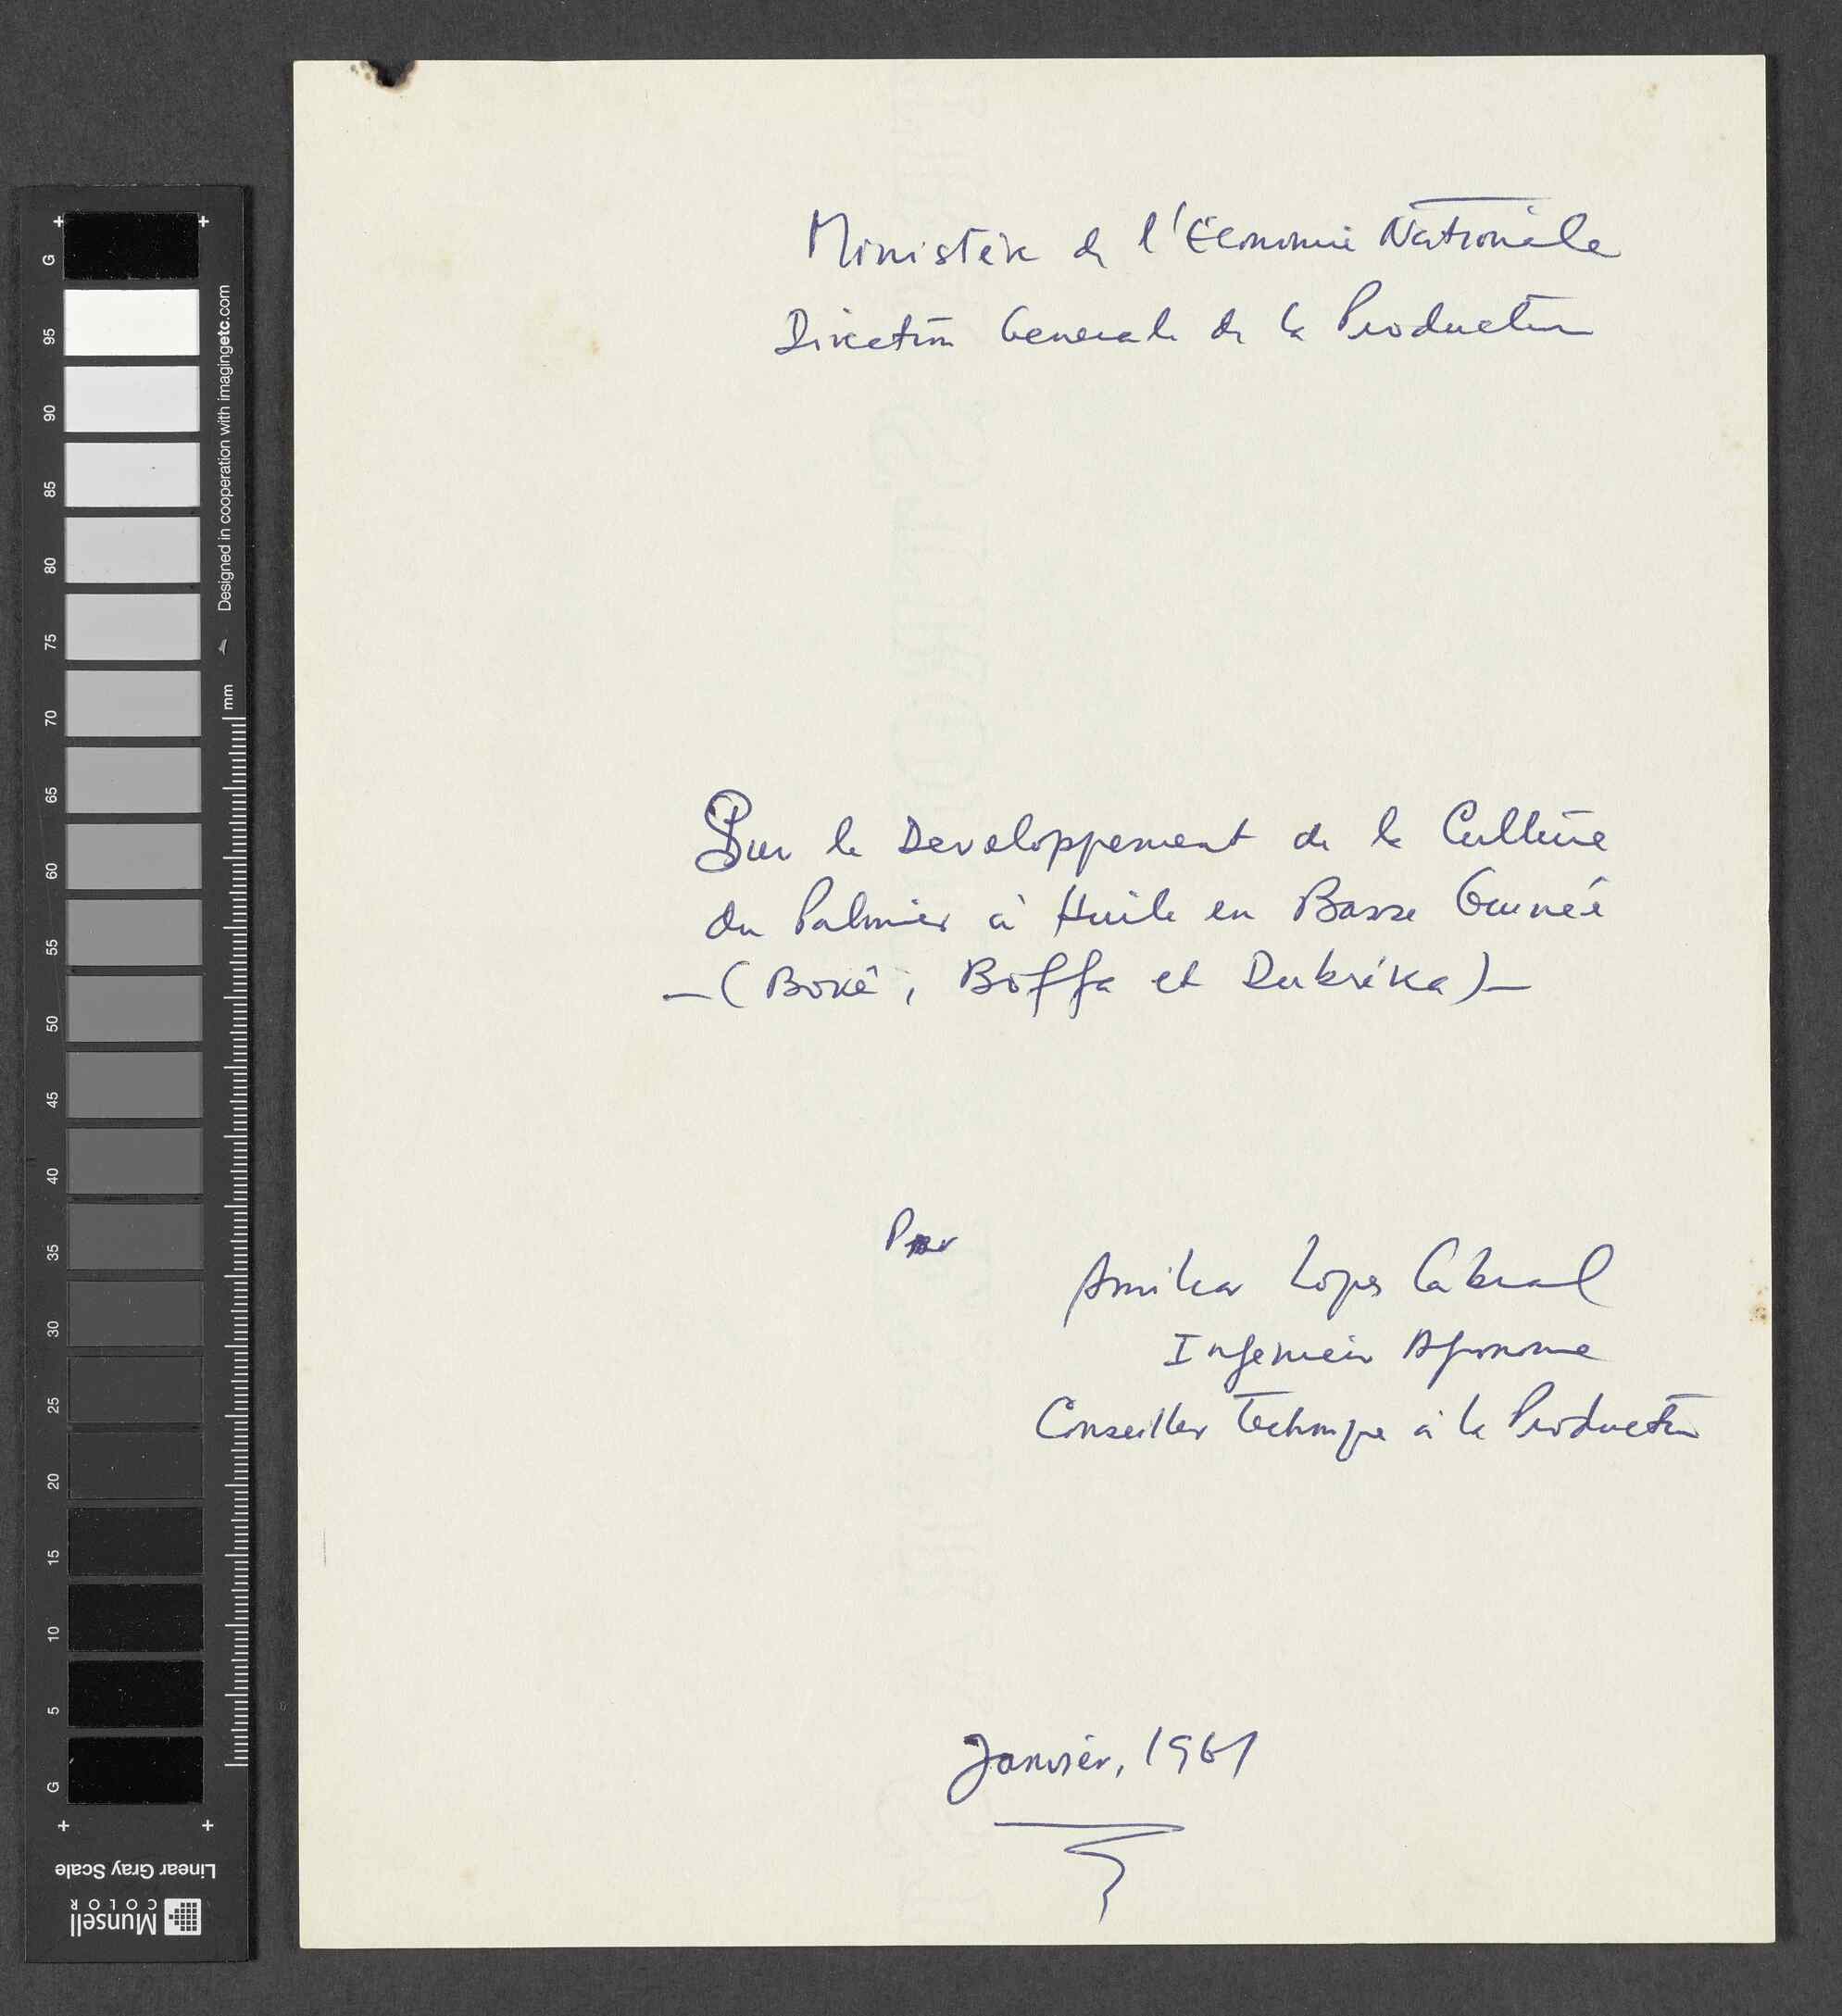 Ministère de l'Économie Nationale
Direction Generale de la Production
Sur le Developpement de la Culture
du Palmier à Huile en Basse Guinée
—(Boké, Boffa et Dubréka)—
Par
Amilcar Lopes Cabral
Ingenieur Agronome
Conseiller Technique à la Production
Janvier, 1961
G
95
90
85
80
75
70
65
60
55
50
45
40
35
30
25
20
15
10
5
G
Designed in cooperation with imagingetc.com
mm
Linear Gray Scale
Munsell
COLOR